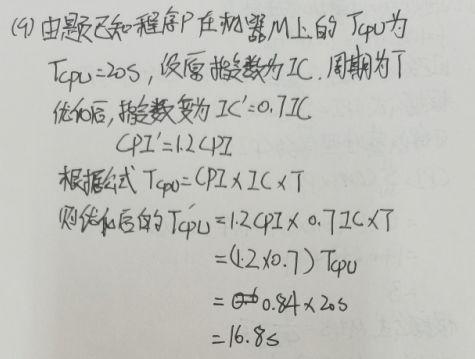 (9)由题已知程序P在机器M上的Tcpu为
Tcpu=20s,设原指令数为IC.周期为T
优化后,指令数变为IC'=0.7IC
CPI'=1.2CPI
根据公式Tcpu=CPI×IC×T
则优化后的Tcpu'=1.2CPI×0.7IC×T
=(1.2×0.7)Tcpu
=0.84×20s
=16.8s